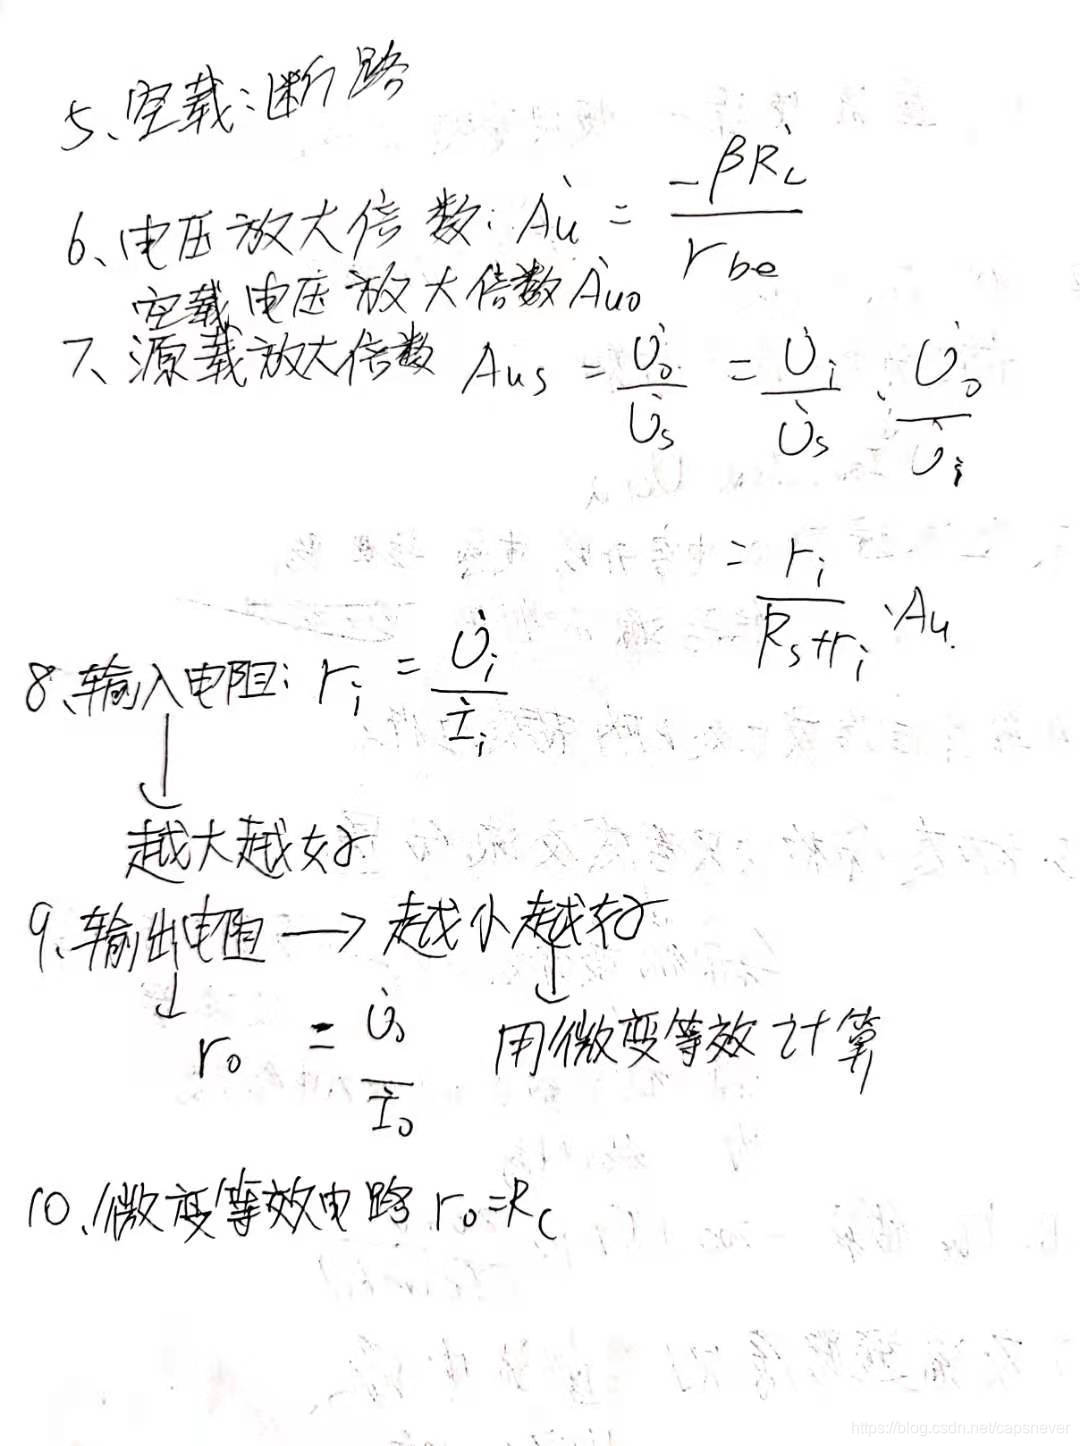 5、空载：断路
6、电压放大倍数：Ȧu = -βRL' / rbe
空载电压放大倍数 Ȧuo
7、源载放大倍数 Aus = U̇o / U̇s = U̇i / U̇s · U̇o / U̇i
= ri / (Rs+ri) · Au.
8、输入电阻：ri = U̇i / İi
↓
越大越好
9、输出电阻 → 越小越好
↓ ↓
ro = U̇o / İo 用微变等效计算
10、微变等效电路 ro=Rc
https://blog.csdn.net/capsnever